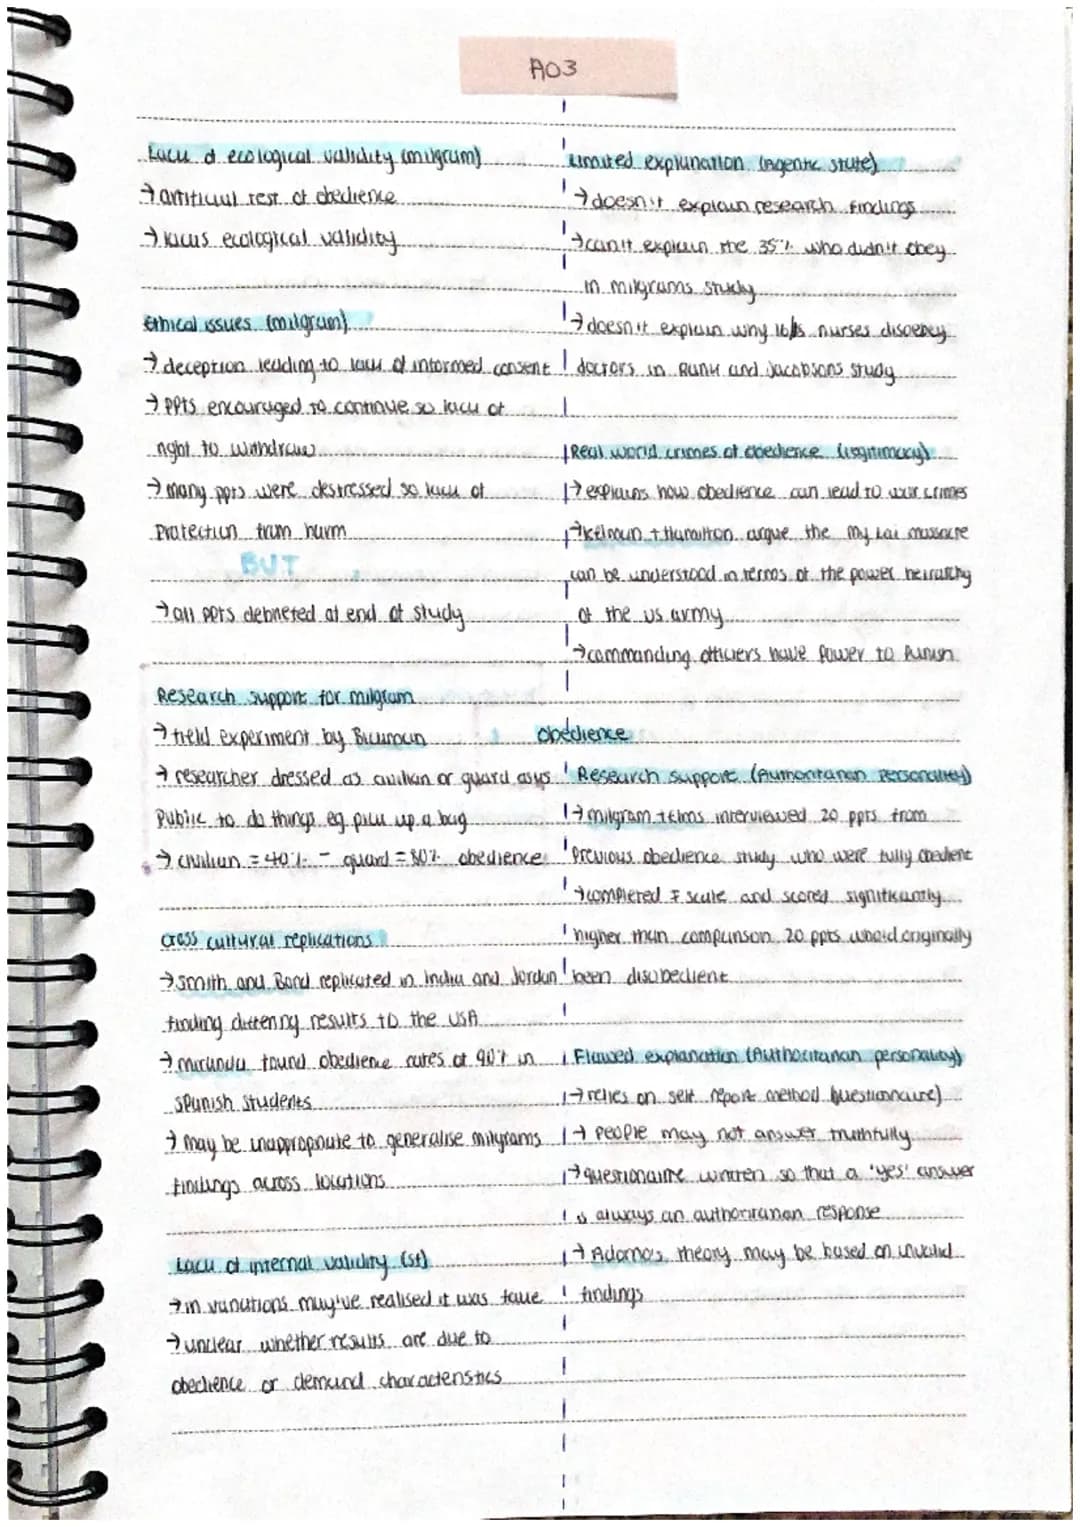 AO3
Lack of ecological validity (milgram)
→ artificial test of obedience
→ lacks ecological validity
Ethical issues (milgram)
→ deception leading to lack of informed consent
→ PPTs encouraged to continue so lack of
right to withdraw
→ many ppts were destressed so lack of
Protection from harm
BUT
→ all PPTs debriefed at end of study
Research support for milgram
→ field experiment by Bickman
→ researcher dressed as civilian or guard asks
Public to do things eg. pick up a bag
→ civilian = 40% - guard = 80% obedience
Cross cultural replications
→ Smith and Bond replicated in India and Jordan
finding differing results to the USA
→ miranda found obedience rates of 90% in
Spanish students
→ may be inappropriate to generalise milgrams
findings across locations
Lack of internal validity (SF)
→ in variations may've realised it was fake
→ unclear whether results are due to
obedience or demand characteristics
Limited explanation (Agentic state)
→ doesn't explain research findings
→ can't explain the 35% who didn't obey
in milgrams study
→ doesn't explain why nurses disobey
doctors in Rank and Jacobsons study
Real world crimes of obedience (legitimacy)
→ explains how obedience can lead to war crimes
→ Kelman + Hamilton argue the My Lai massacre
can be understood in terms of the power heirarchy
of the US army
→ commanding officers have Power to Punish
obedience
Research support (Authoritarian Personality)
→ milgram + Elms interviewed 20 ppts from
Previous obedience study who were fully obedient
→ completed F scale and scored significantly
higher than comparison 20 ppts who'd originally
been disobedient
Flawed explanation (Authoritarian personality)
→ relies on self report method (questionnaire)
→ People may not answer truthfully
→ questionaire written so that a 'yes' answer
is always an authoritarian response
→ Adorno's theory may be based on invalid
findings